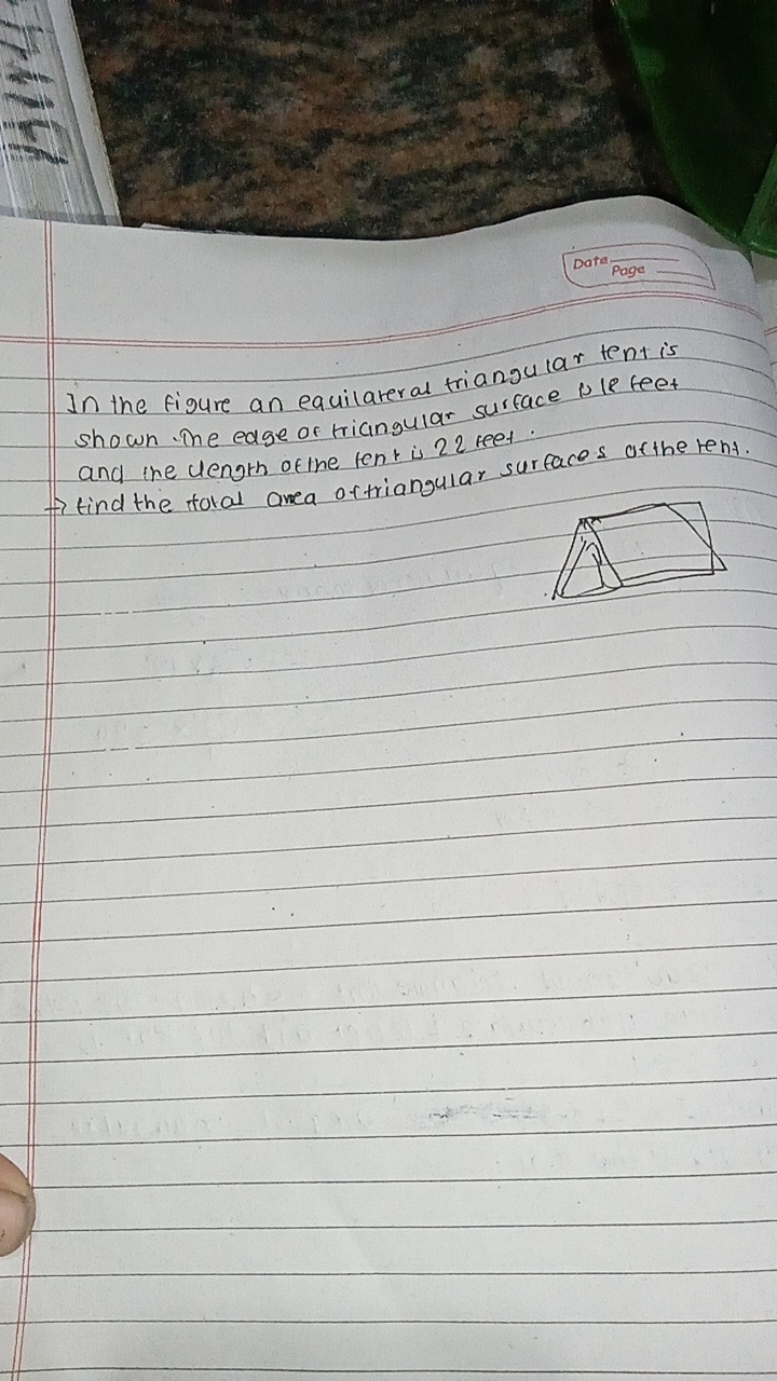 Date
Page
In the figure an equilateral triangular tent is
shown. The edge of triangular surface is 16 feet
and the length of the tent is 22 feet.
→ find the total area of triangular surfaces of the tent.